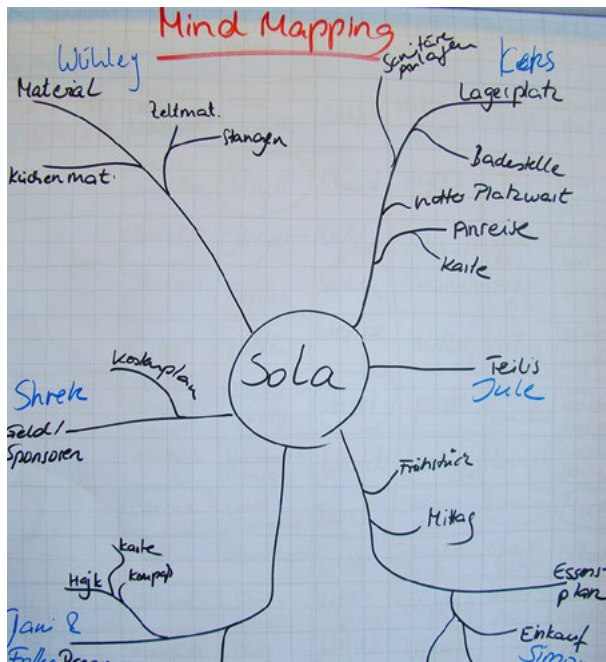 Mind Mapping
Wühley
Material
Zeltmat.
Stangen
Küchenmat.
Sanitäre
Keks
Lagerplatz
Badestelle
netter Platzwart
Anreise
Karte
Sola
Teilis
Jule
Kostenplan
Shrek
Geld/
Sponsoren
Frühstück
Mittag
Essens-
plan
Einkauf
Karte
Kompaß
Hajk
Jani &